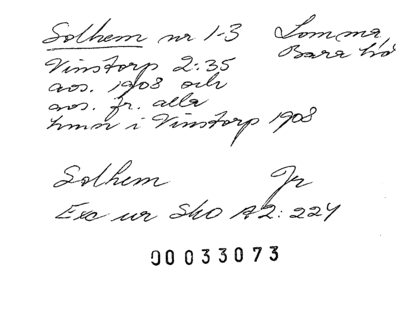 Solhem nr 1-3 Lomma,
Bara hd
Vinstorp 2:35
avs. 1908 och
avs. fr. alla
hmn i Vinstorp 1908
Solhem Jr
Exc ur SkO A2: 224
00033073